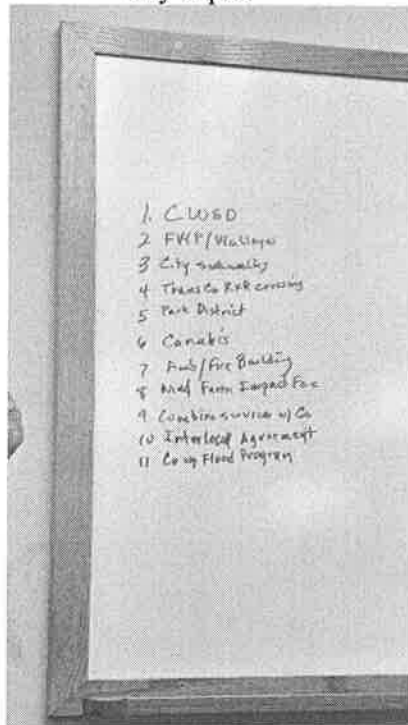 1. CWSD
2 FVRP/
3 City sidewalks
4 Trans Co RXR crossing
5 Park District
6 Canabis
7 Amb/Fire Building
8 Wind Farm Impact Fee
9 Combine services w/ Co
10 Interlocal Agreement
11 Flood Program